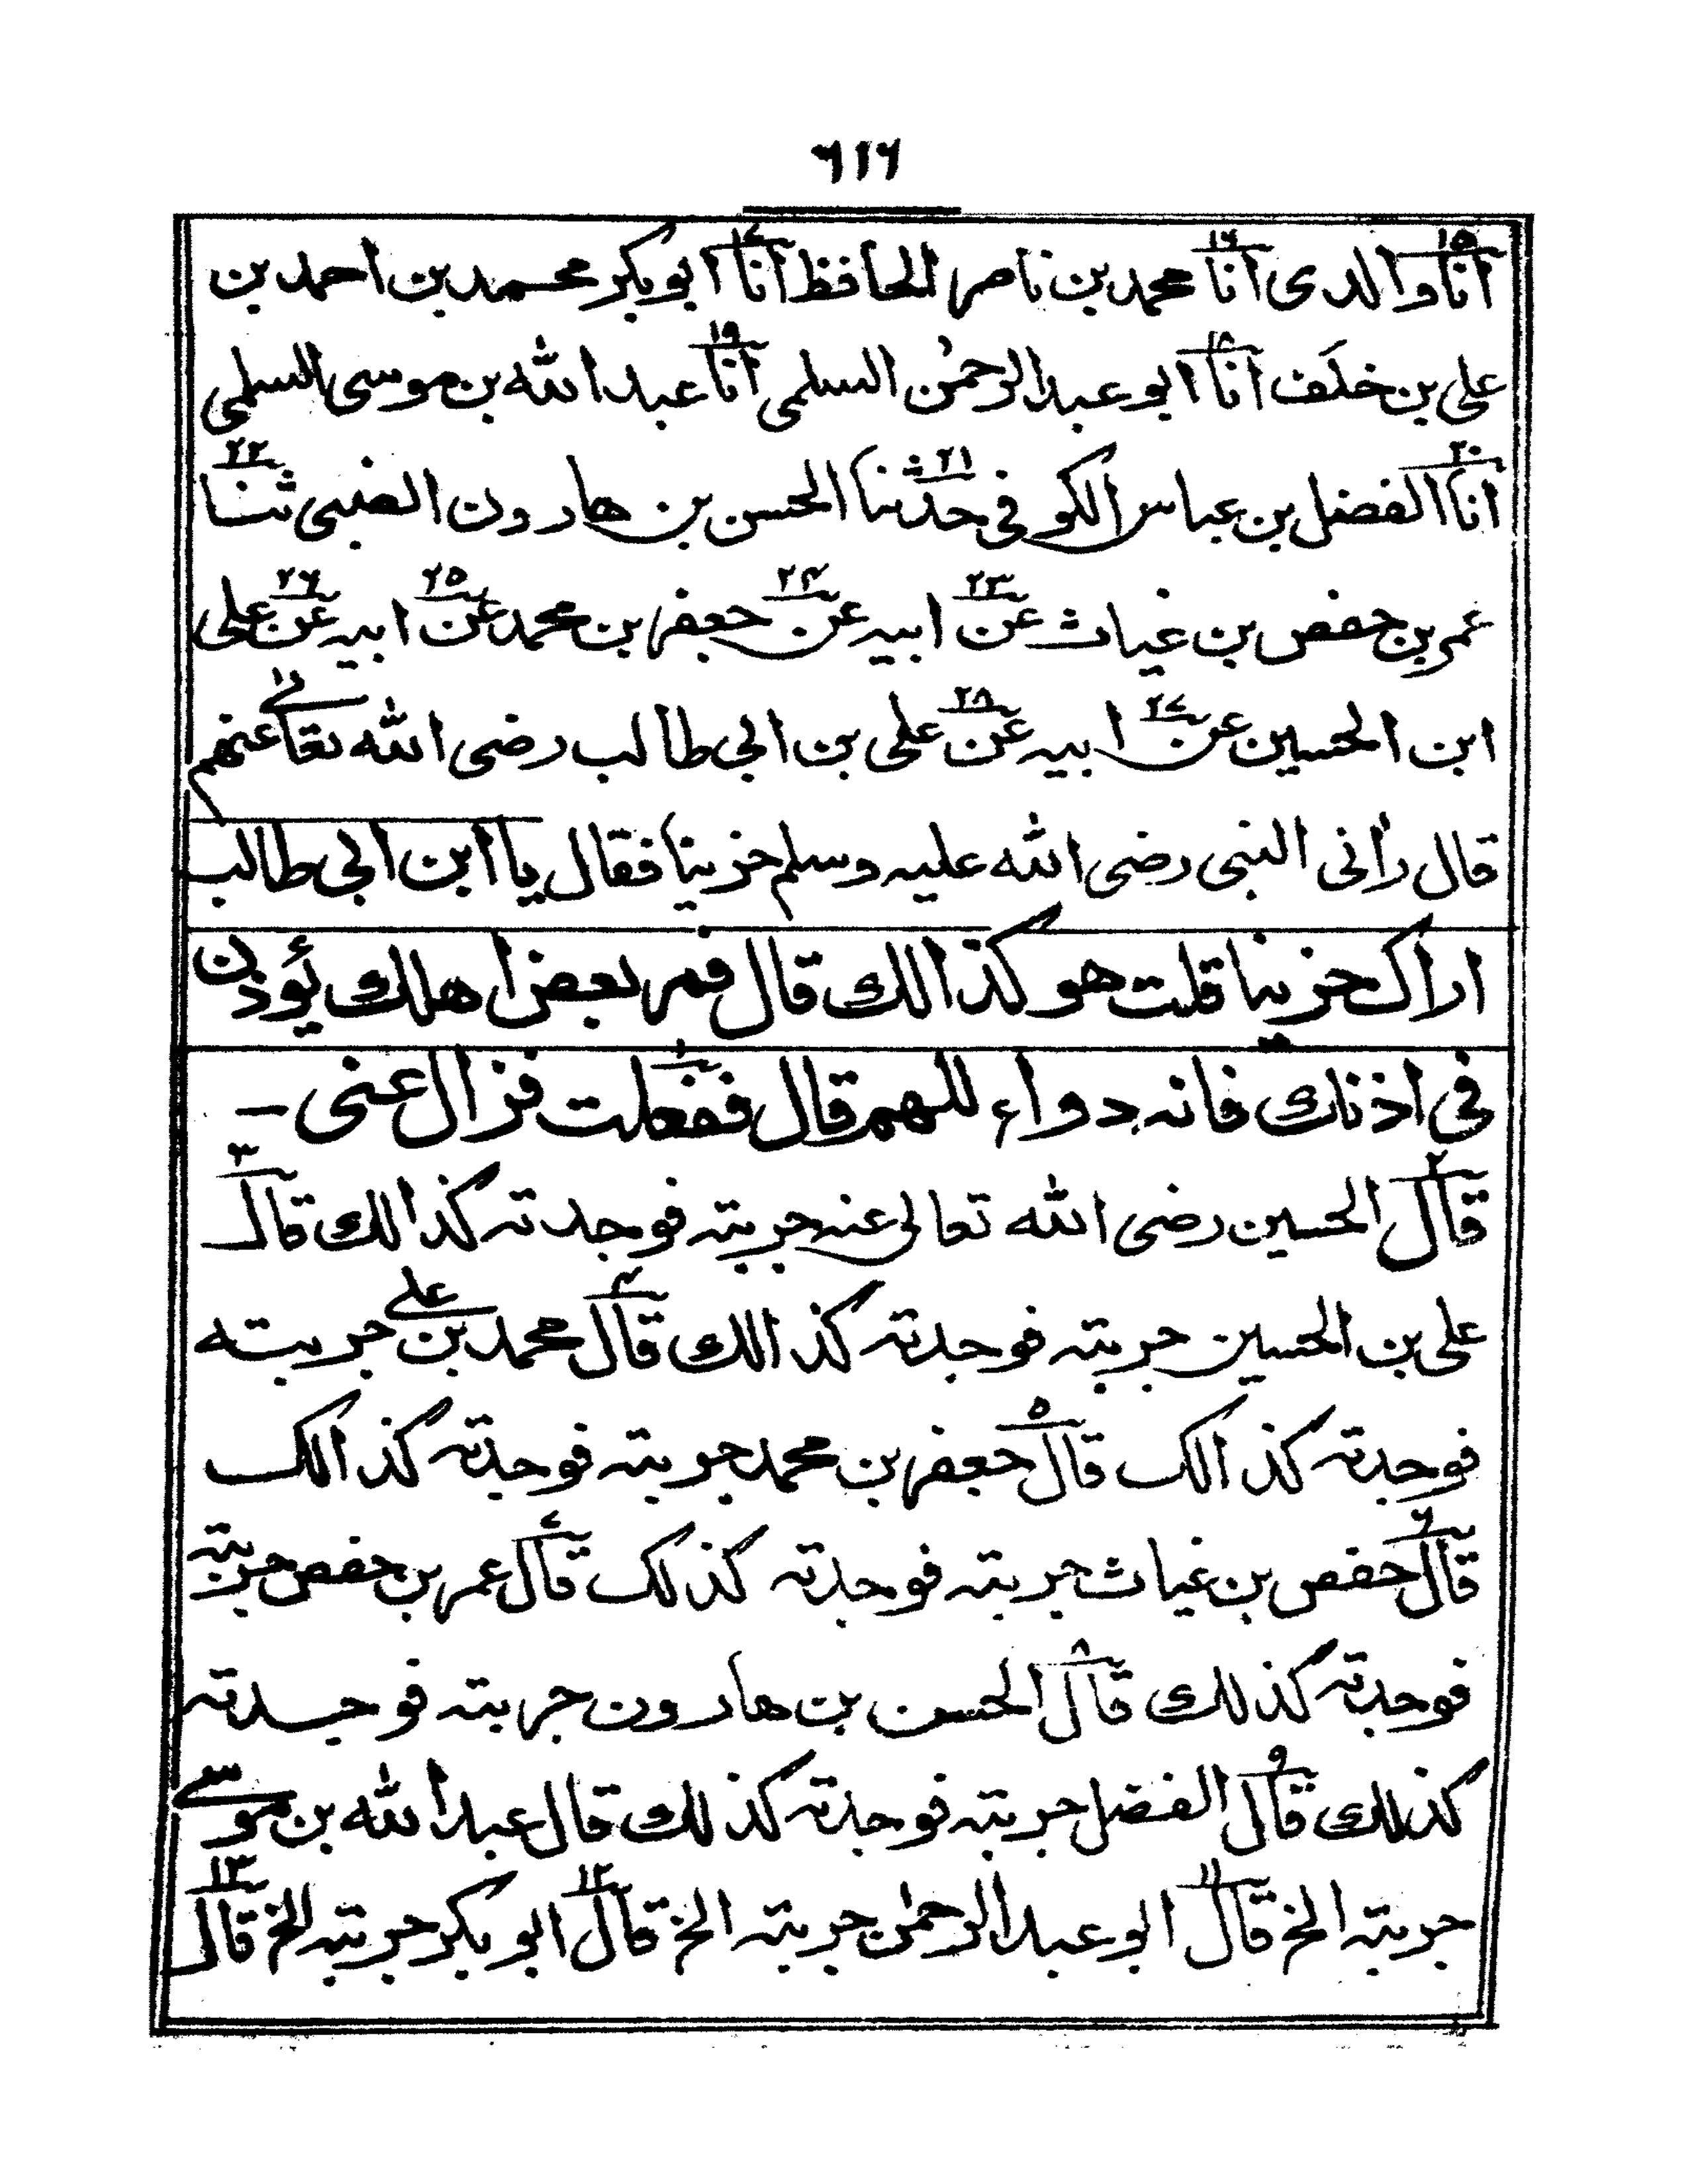 ٦١٦
انا والدی انا محمد بن ناصر الحافظ انا ابو بکر محمد بن احمد بن
علی بن خلف انا ابو عبد الرحمٰن السلمی انا عبد الله بن موسی السلمی
انا الفضل بن عباس الکوفی حدثنا الحسن بن هارون الضبی ثنا
عمر بن حفص بن غیاث عن ابیه عن جعفر بن محمد عن ابیه عن علی
ابن الحسین عن ابیه عن علی بن ابی طالب رضی الله تعالی عنهم
قال رأنی النبی رضی الله علیه وسلم حزینا فقال یا ابن ابی طالب
اراک حزینا قلت هو کذالک قال فمر بعض اهلک یُؤذن
فی اذنک فانه دواء للهم قال ففعلت فزال عنی -
قال الحسین رضی الله تعالی عنه جربته فوجدته کذالک قال
علی بن الحسین جربته فوجدته کذالک قال محمد بن علی جربته
فوجدته کذالک قال جعفر بن محمد جربته فوجدته کذالک
قال حفص بن غیاث جربته فوجدته کذلک قال عمر بن حفص جربته
فوجدته کذلک قال الحسن بن هارون جربته فوجدته
کذلک قال الفضل جربته فوجدته کذلک قال عبد الله بن موسی
جربته الخ قال ابو عبد الرحمٰن جربته الخ قال ابو بکر جربته الخ قال